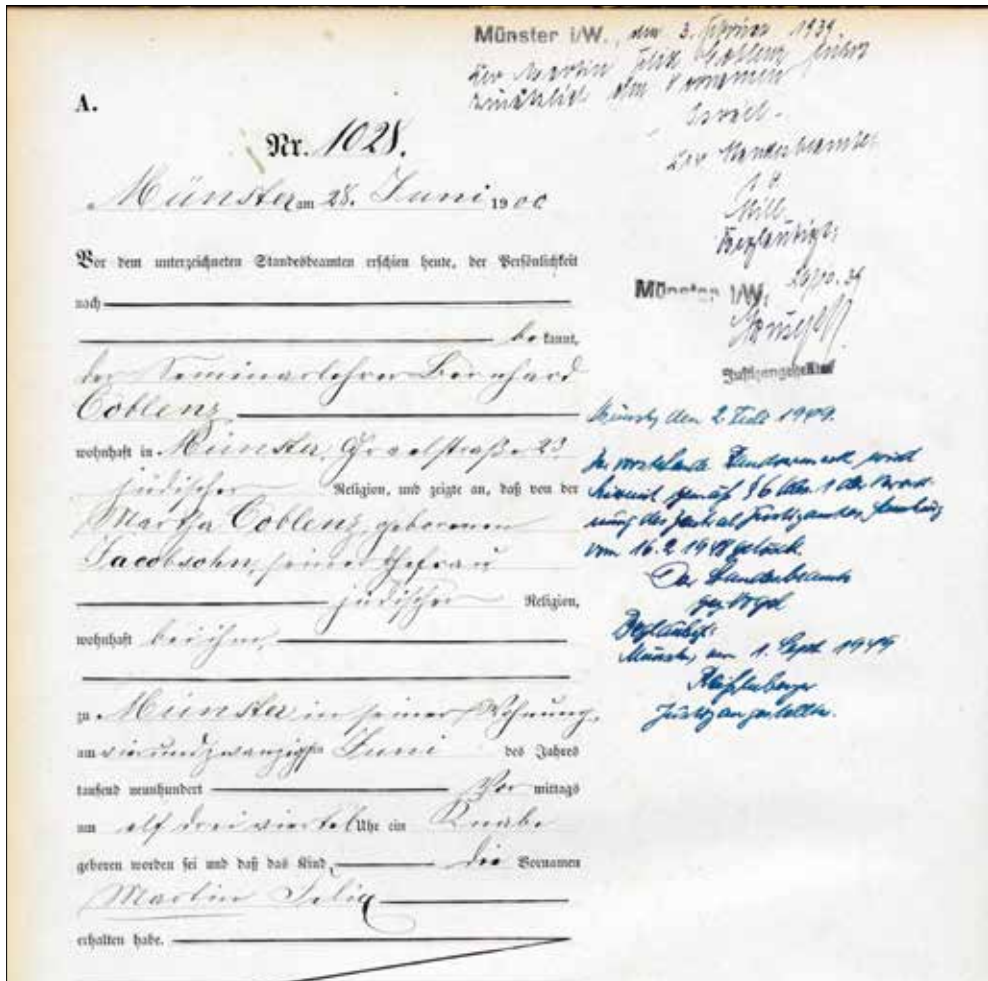 A.
Nr. 1028.
Münster am 28. Juni 1900
Vor dem unterzeichneten Standesbeamten erschien heute, der Persönlichkeit
nach
be kannt,
der Seminarlehrer Bernhard
Coblenz
wohnhaft in Münster, 23,
jüdischer Religion, und zeigte an, daß von der
Martha Coblenz, geborenen
Jacobsohn, seiner Ehefrau
jüdischer Religion,
wohnhaft bei ihm,
zu Münster in seiner Wohnung,
am vierundzwanzigsten Juni des Jahres
tausend neunhundert Vor mittags
um elf drei viertel Uhr ein Knabe
geboren worden sei und daß das Kind die Vornamen
Martin Felix
erhalten habe.
Münster i/W., den 3. Februar 1939.
Der Martin Felix Coblenz führt
zusätzlich den Vornamen
Israel.
Der Standesbeamte
Beglaubigt:
Münster i/W.
Justizangestellter
Münster, den 2. Juli 1949.
Der vorstehende Randvermerk wird
hiermit gemäß § 6 Abs. 1 der Verord-
nung des Zentral Justizamtes Hamburg
vom 16.2.1948 gelöscht.
Der Standesbeamte
gez. Vogel
Beglaubigt:
Münster, am 1. Sept. 1949
Justizangestellter.